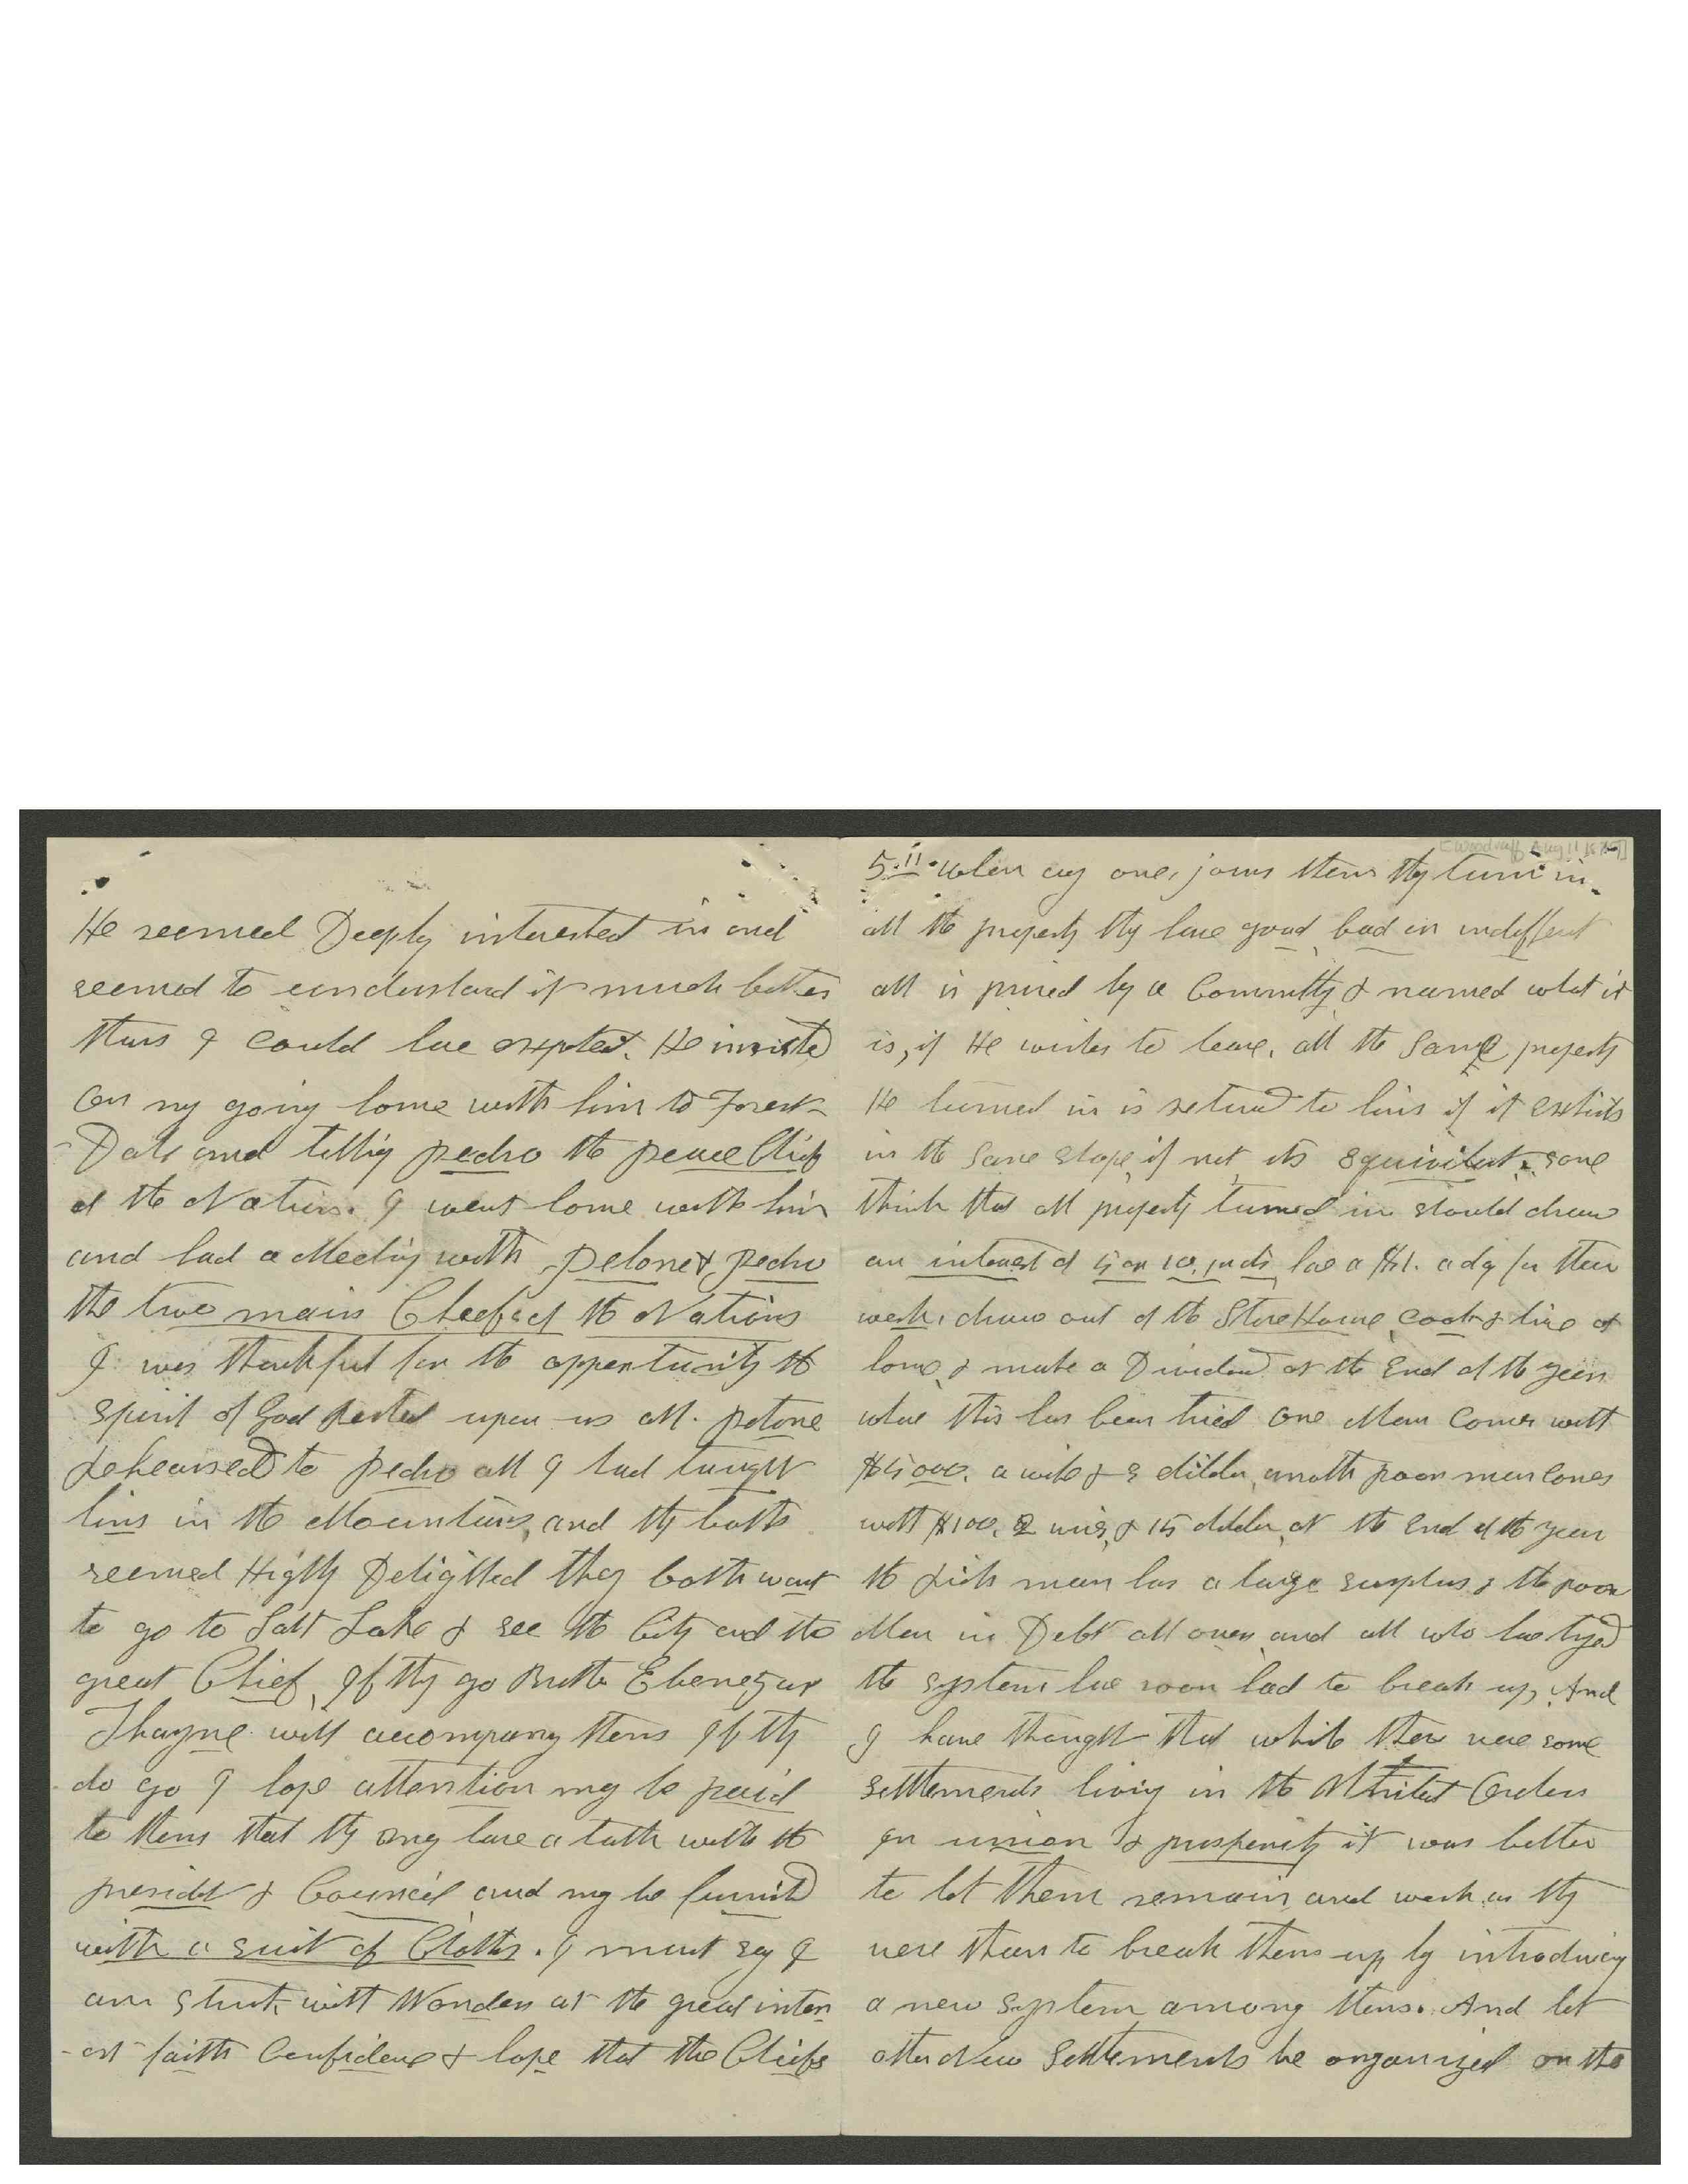 He seemed Deeply interested in and
seemed to understand it much better
than I could have expected. He insisted
on my going home with him to Forest
-Dale and telling pedro the peace Chief
of the Nation. I went home with him
and had a Meeting with Petone & Pedro
the two main Cheefs of the Nations
I was thankful for the opportunity the
Spirit of God Rested upon us all. Petone
Rehearsed to Pedro all I had taught
him in the Mountains, and they both
seemed Highly Delighted they both want
to go to Salt Lake & see the City and the
great Chief, If they go Brother Ebenezar
Thayne will accompany them If they
do go I hope attention may be paid
to them that they may have a talk with the
presidet & Council and may be furnished
with a suit of Cloths. I must say I
am Struck with Wonder at the great inter
-est faith Confidence & hope that the Chiefs
[Woodruff Aug 11 1879]
5.11. when any one, joins them they turn in
all the property they have good bad or indifferent
all is prised by a Committy & named what it
is, if He wishes to leave, all the Same property
He turned in is returned to him if it exhists
in the Same shape if not its Equivilent, some
think that all property turned in should draw
an interest of 5 or 10, have a $1. a day for their
work, draw out of the Store House, Cook & live at
home, & make a Dividend at the End of the year
whare this has been tried one Man Comes with
$5000, a wife & children, another poor man Comes
with $100, 2 wives, & 15 children, at the End of the year
the Rich man has a large surplus & the poor
Man in Debt all over and all who have tryed
the system have soon had to break up, And
I have thought that while there were some
settlements living in the United Order
in union & prosperity it was better
to let them remain, and work as they
were than to break them up by introducing
a new System among them. And let
other New Settlements be organized on the